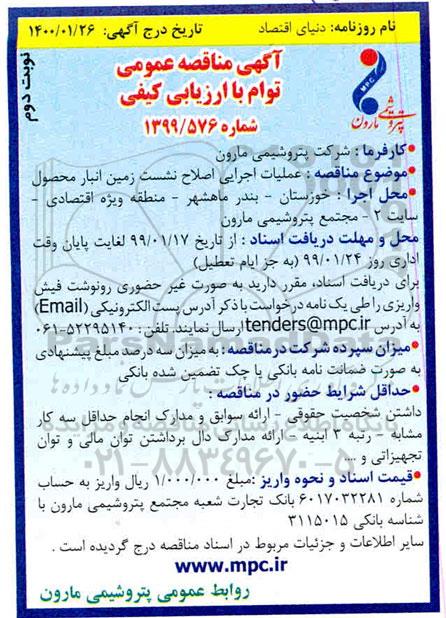 نام روزنامه: دنیای اقتصاد
تاریخ درج آگهی: ۱۴۰۰/۰۱/۲۶
نوبت دوم
آگهی مناقصه عمومی
توام با ارزیابی کیفی
شماره ۱۳۹۹/۵۷۶
MPC
پتروشیمی مارون
•کارفرما: شرکت پتروشیمی مارون
•موضوع مناقصه: عملیات اجرایی اصلاح نشست زمین انبار محصول
•محل اجرا: خوزستان - بندر ماهشهر - منطقه ویژه اقتصادی -
سایت ۲ - مجتمع پتروشیمی مارون
محل و مهلت دریافت اسناد: از تاریخ ۹۹/۰۱/۱۷ لغایت پایان وقت
اداری روز ۹۹/۰۱/۲۴ (به جز ایام تعطیل)
برای دریافت اسناد، مقرر دارید به صورت غیر حضوری رونوشت فیش
واریزی را طی یک نامه درخواست با ذکر آدرس پست الکترونیکی (Email)
به آدرس tenders@mpc.ir ارسال نمایند. تلفن: ۵۲۲۹۵۱۴۰-۰۶۱
•میزان سپرده شرکت در مناقصه: به میزان سه درصد مبلغ پیشنهادی
به صورت ضمانت نامه بانکی یا چک تضمین شده بانکی
•حداقل شرایط حضور در مناقصه:
داشتن شخصیت حقوقی - ارائه سوابق و مدارک انجام حداقل سه کار
مشابه - رتبه ۳ ابنیه - ارائه مدارک دال برداشتن توان مالی و توان
تجهیزاتی و ...
•قیمت اسناد و نحوه واریز: مبلغ ۱/۰۰۰/۰۰۰ ریال واریز به حساب
شماره ۶۰۱۷۰۳۲۲۸۱ بانک تجارت شعبه مجتمع پتروشیمی مارون با
شناسه بانکی ۳۱۱۵۰۱۵
سایر اطلاعات و جزئیات مربوط در اسناد مناقصه درج گردیده است.
www.mpc.ir
روابط عمومی پتروشیمی مارون
ParsNamadData
۰۲۱-۸۸۳۴۹۶۷۰-۵